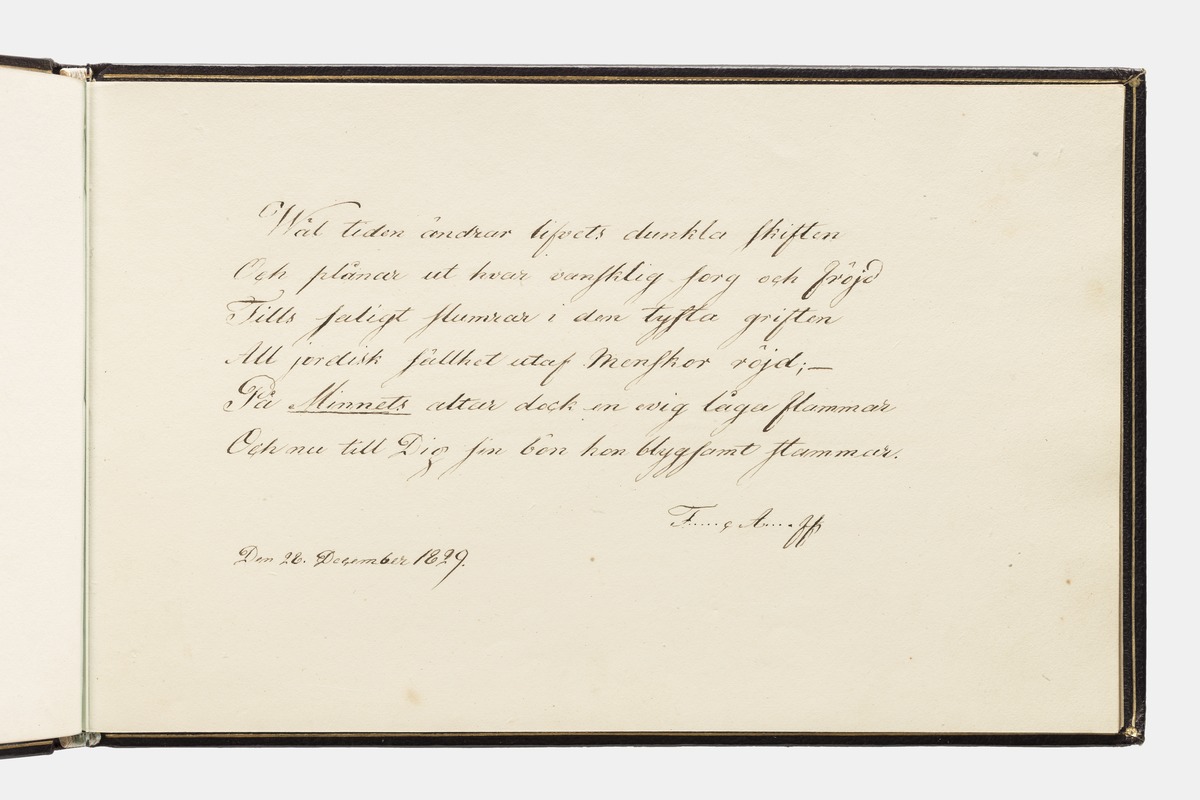 Wäl tiden ändrar lifvets dunkla skiften
Och plånar ut hvar vansklig sorg och fröjd
Tills saligt slumrar i den tysta griften
All jordisk sällhet utaf Menskor röjd; —
På Minnets altar dock en evig låga flammar
Och nu till Dig sin bön hon blygsamt stammar.
Den 28. December 1829.